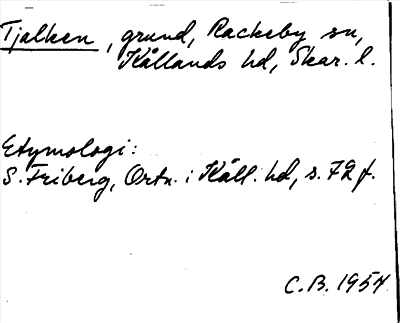 Tjalken, grund, Rackeby sn,
Kållands hd, Skar. l.
Etymologi:
S. Friberg, Ortn. i Kåll. hd, s. 72 f.
C.B. 1954